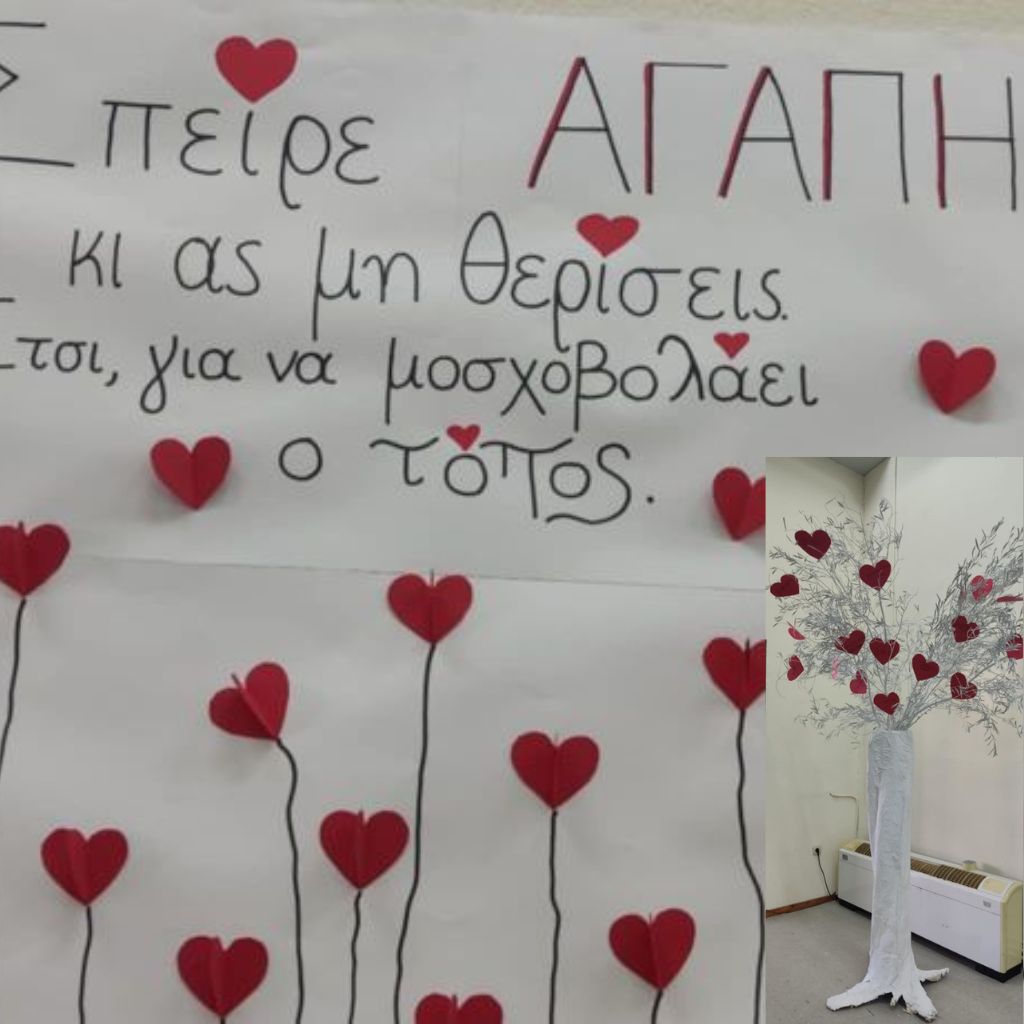 Σπείρε ΑΓΑΠΗ
κι ας μη θερίσεις.
Έτσι, για να μοσχοβολάει
ο τόπος.